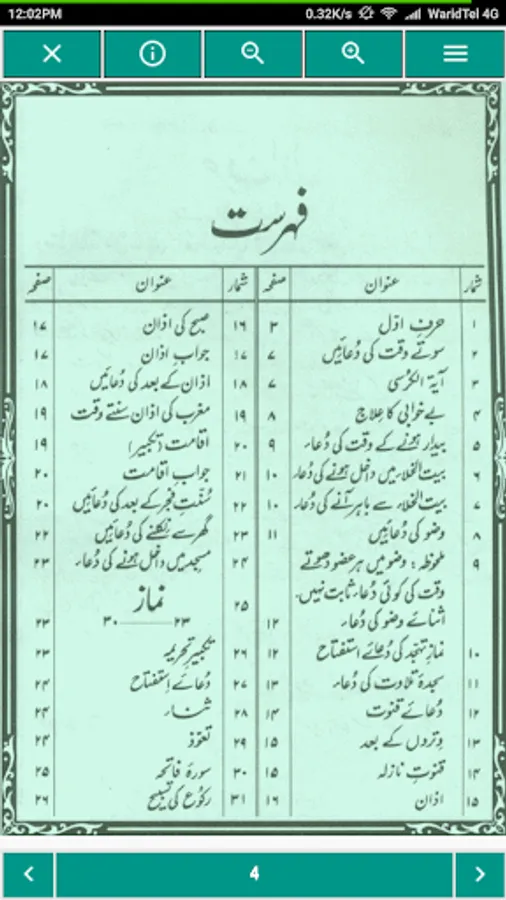 12:02PM 0.32K/s WaridTel 4G
فہرست
شمار عنوان صفحہ شمار عنوان صفحہ
۱ حرفِ اوّل ۳ ۱۶ صبح کی اذان ۱۷
۲ سوتے وقت کی دُعائیں ۷ ۱۷ جوابِ اذان ۱۷
۳ آیۃ الکرسی ۷ ۱۸ اذان کے بعد کی دُعائیں ۱۸
۴ بے خوابی کا علاج ۸ ۱۹ مغرب کی اذان سنتے وقت ۱۹
۵ بیدار ہونے کے وقت کی دُعاء ۹ ۲۰ اقامت (تکبیر) ۱۹
۶ بیت الخلاء میں داخل ہونے کی دُعاء ۱۰ ۲۱ جوابِ اقامت ۲۰
۷ بیت الخلاء سے باہر آنے کی دُعاء ۱۰ ۲۲ سُنّتِ فجر کے بعد کی دُعائیں ۲۰
۸ وضو کی دُعائیں ۱۱ ۲۳ گھر سے نکلنے کی دُعائیں ۲۲
۹ ملحوظہ: وضو میں ہر عضو دھوتے ۲۴ مسجد میں داخل ہونے کی دُعاء ۲۳
وقت کی کوئی دُعاء ثابت نہیں۔ ۲۵ نماز
اثنائے وضو کی دُعاء ۱۲ ۲۳ ــــــ ۳۰ ۲۳
۱۰ نمازِ تہجّد کی دُعائے استفتاح ۱۲ ۲۶ تکبیرِ تحریمہ ۲۳
۱۱ سجدۂ تلاوت کی دُعاء ۱۳ ۲۷ دُعائے استفتاح ۲۴
۱۲ دُعائے قنوت ۱۴ ۲۸ ثناء ۲۴
۱۳ وتروں کے بعد ۱۵ ۲۹ تعوّذ ۲۴
۱۴ قنوتِ نازلہ ۱۵ ۳۰ سورۂ فاتحہ ۲۵
۱۵ اذان ۱۶ ۳۱ رکوع کی تسبیح ۲۶
4